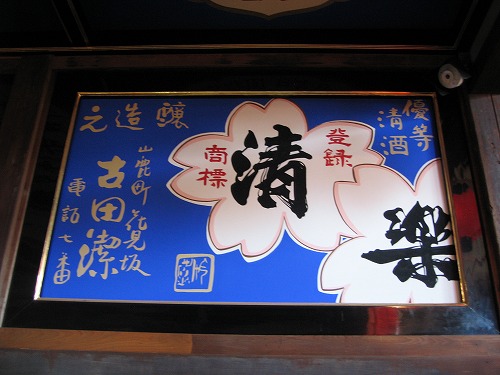 優等
清酒
登録
商標
清
樂
醸造元
山鹿町花見坂
古田潔
電話七番